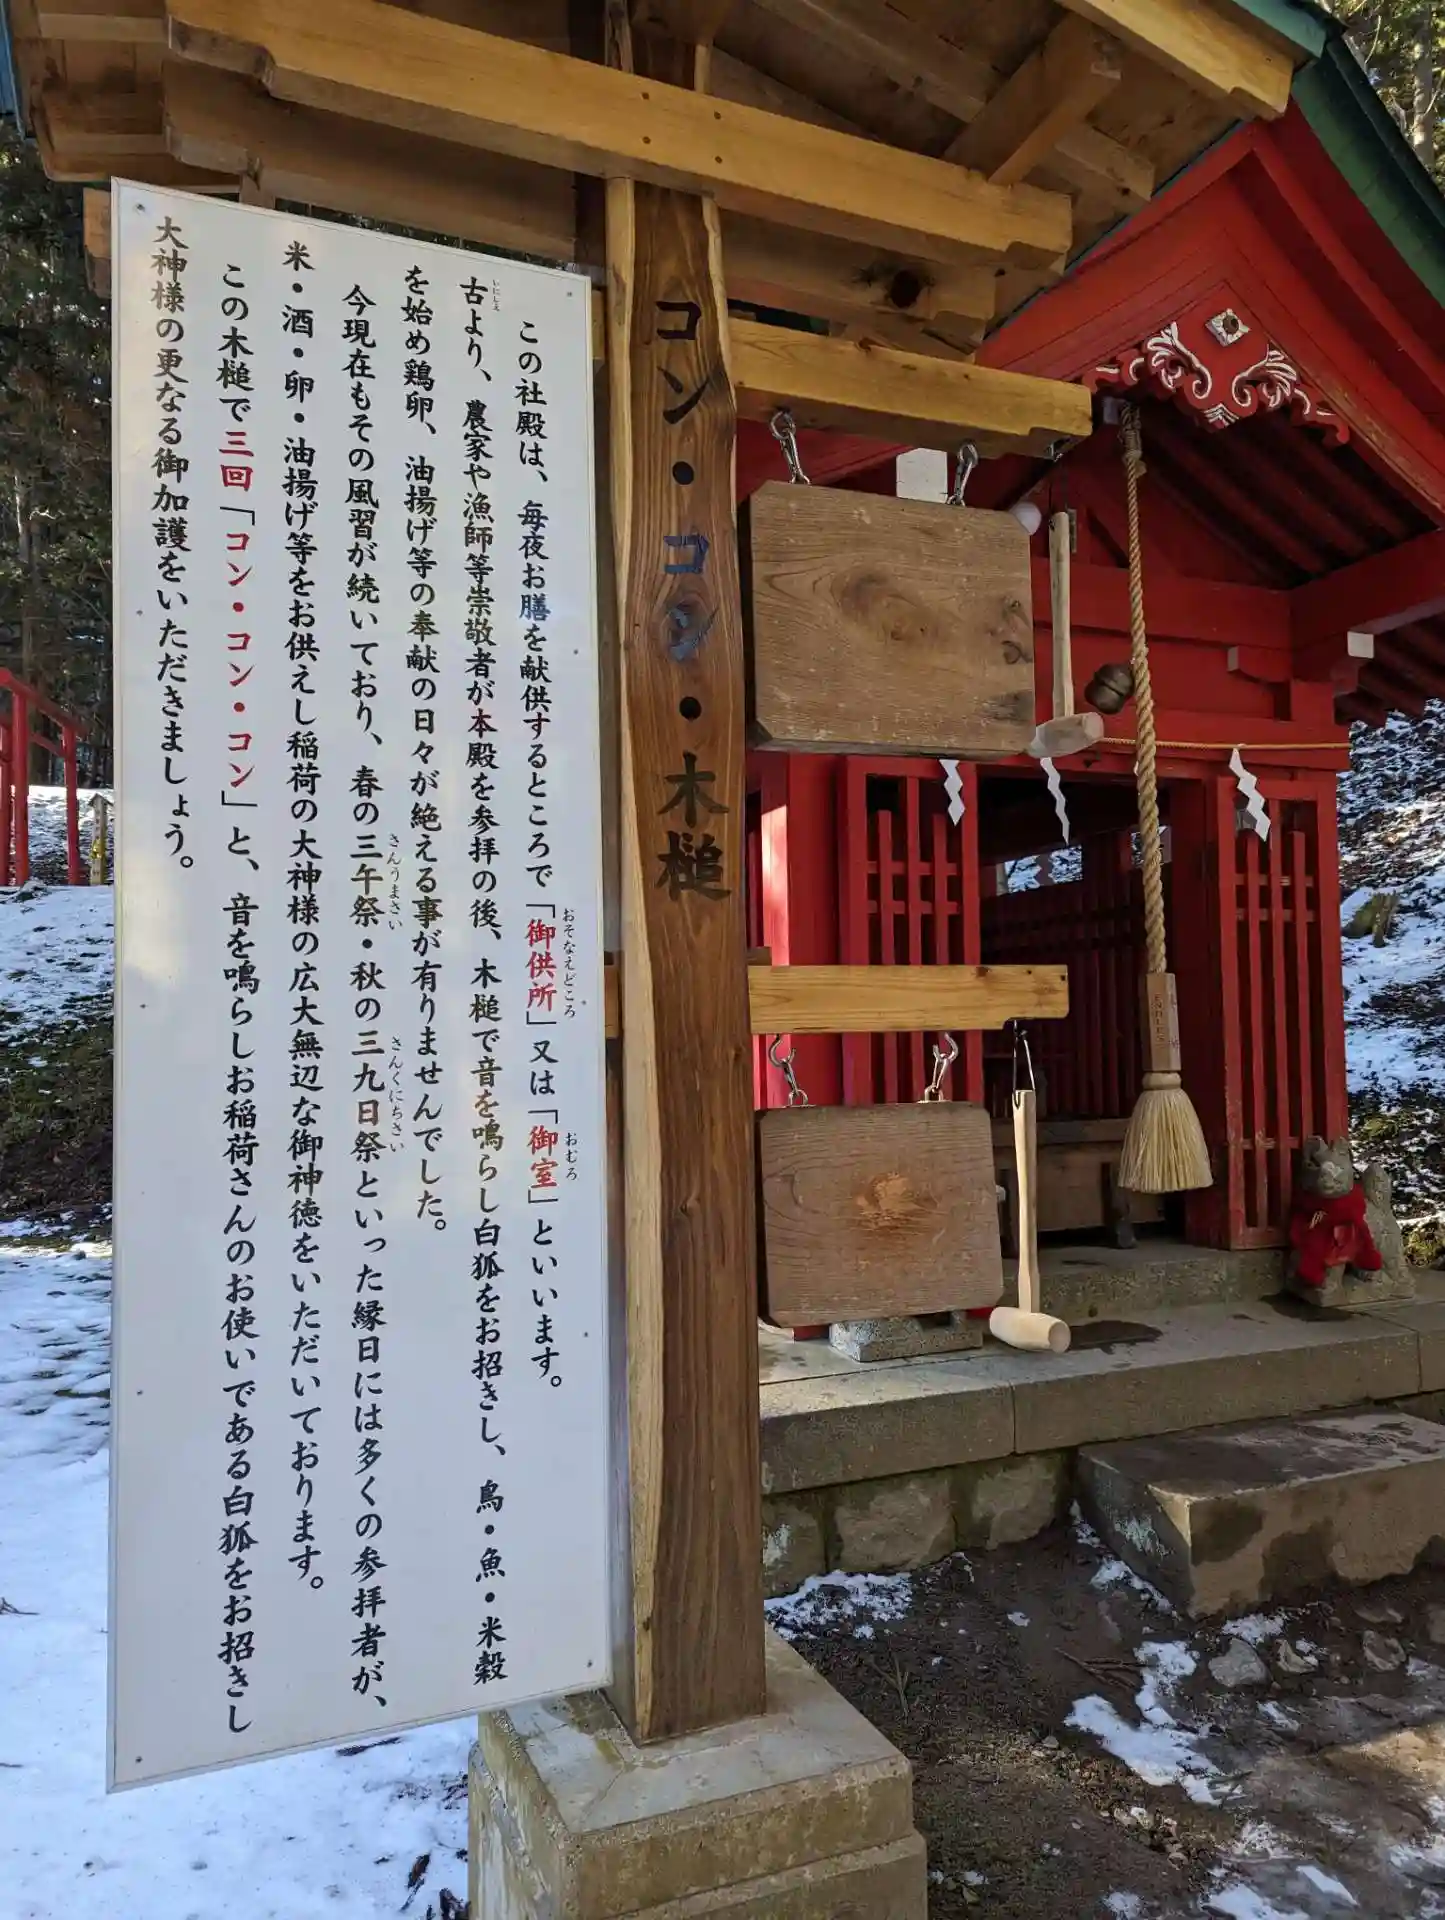 コン・コン・木槌
この社殿は、毎夜お膳を献供するところで「御供所」又は「御室」といいます。
おそなえどころ
おむろ
古より、農家や漁師等崇敬者が本殿を参拝の後、木槌で音を鳴らし白狐をお招きし、鳥・魚・米穀
いにしえ
を始め鶏卵、油揚げ等の奉献の日々が絶える事が有りませんでした。
今現在もその風習が続いており、春の三午祭・秋の三九日祭といった縁日には多くの参拝者が、
さんうまさい
さんくにちさい
米・酒・卵・油揚げ等をお供えし稲荷の大神様の広大無辺な御神徳をいただいております。
この木槌で三回「コン・コン・コン」と、音を鳴らしお稲荷さんのお使いである白狐をお招きし
大神様の更なる御加護をいただきましょう。